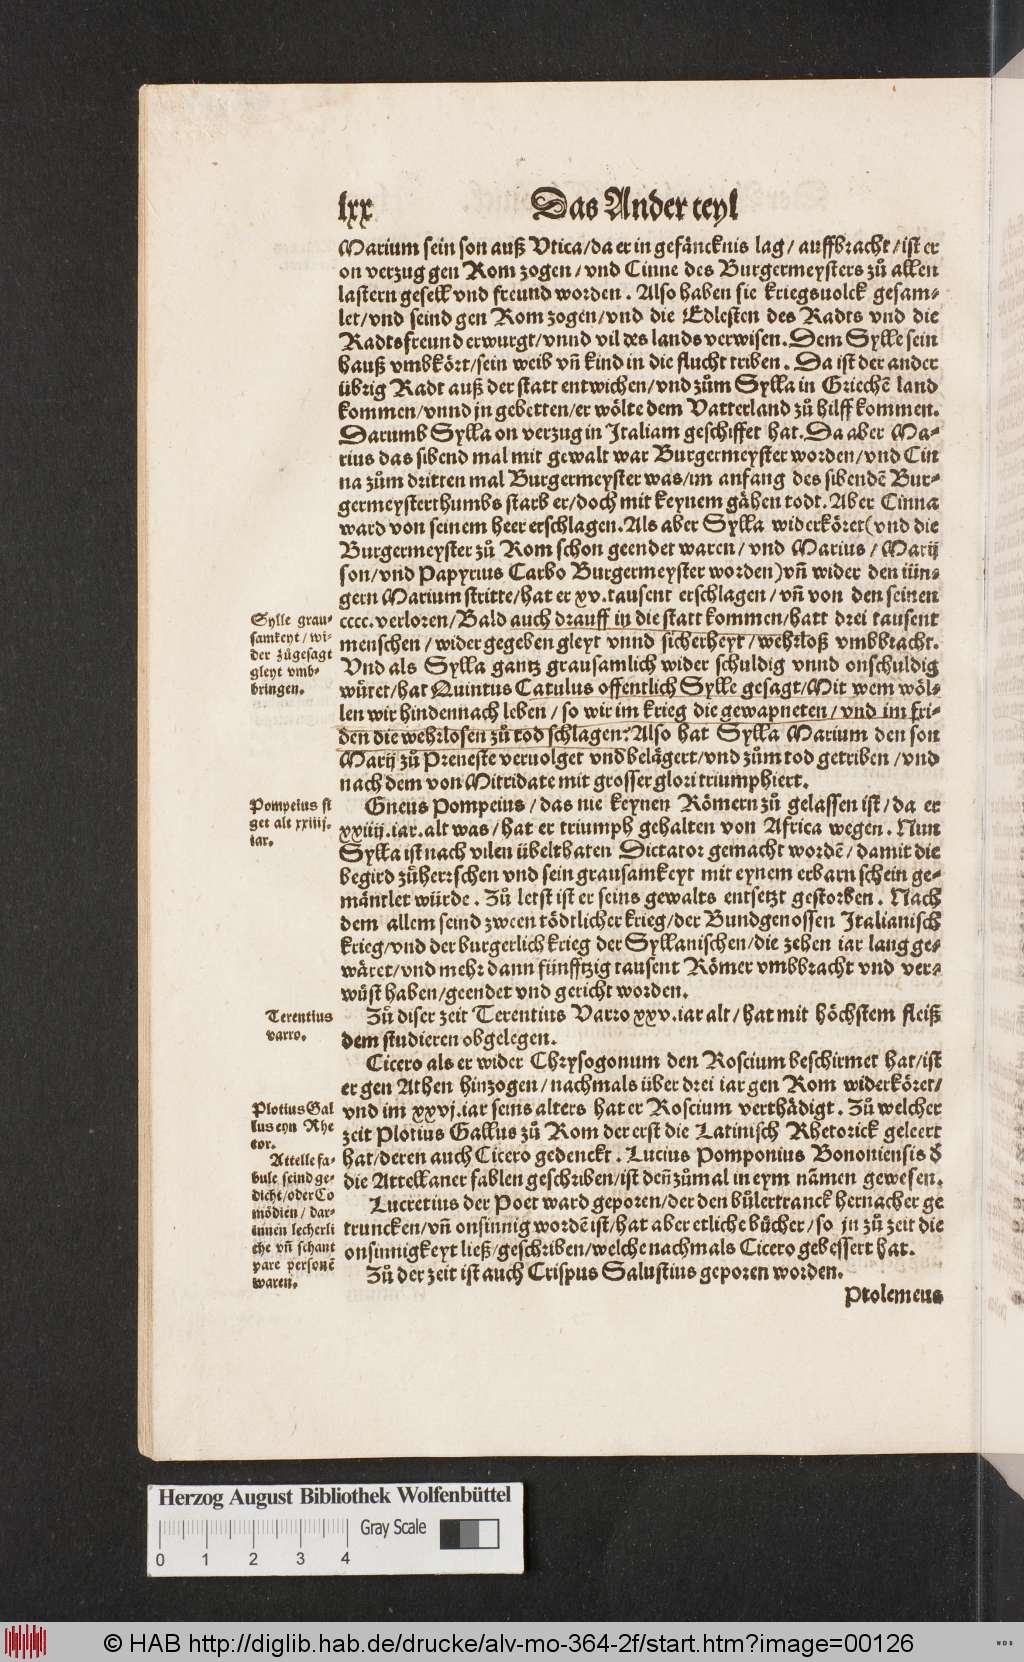 lxx Das Ander teyl
Marium sein son auß Vtica/da er in gefäncknis lag/ auffbracht/ist er
on verzug gen Rom zogen/vnd Cinne des Burgermeysters zů allen
lastern gesell vnd freund worden. Also haben sie kriegsuolck gesam-
let/vnd seind gen Rom zogen/vnd die Edlesten des Radts vnd die
Radtsfreund erwurgt/vnnd vil des lands verwisen. Dem Sylle sein
hauß vmbkört/sein weib vñ kind in die flucht triben. Da ist der ander
übrig Radt auß der statt entwichen/vnd zům Sylla in Griechẽ land
kommen/vnnd jn gebetten/er wölte dem Vatterland zů hilff kommen.
Darumb Sylla on verzug in Italiam geschiffet hat. Da aber Ma-
rius das sibend mal mit gewalt war Burgermeyster worden/vnd Cin
na zům dritten mal Burgermeyster was/im anfang des sibendẽ Bur-
germeysterthumbs starb er/doch mit keynem gähen todt. Aber Cinna
ward von seinem heer erschlagen. Als aber Sylla widerköret(vnd die
Burgermeyster zů Rom schon geendet waren/ vnd Marius/ Marij
son/vnd Papyrius Carbo Burgermeyster worden)vñ wider den iün-
gern Marium stritte/hat er xv.tausent erschlagen/ vñ von den seinen
cccc.verloren/Bald auch drauff in die statt kommen/hatt drei tausent
menschen/wider gegeben gleyt vnnd sicherheyt/wehrloß vmbbracht.
Vnd als Sylla gantz grausamlich wider schuldig vnnd onschuldig
wůret/hat Quintus Catulus offentlich Sylle gesagt/Mit wem wöl-
len wir hindennach leben/ so wir im krieg die gewapneten/vnd im fri-
den die wehrlosen zů tod schlagen? Also hat Sylla Marium den son
Marij zů Preneste veruolget vnd belägert/vnd zům tod getriben/vnd
nach dem von Mitridate mit grosser glori triumphiert.
Sylle grau-
samkeyt/wi-
der zůgesagt
gleyt vmb-
bringen.
Gneus Pompeius/ das nie keynen Römern zů gelassen ist/da er
xxiiij.iar.alt was/hat er triumph gehalten von Africa wegen. Nun
Sylla ist nach vilen übelthaten Dictator gemacht wordẽ/damit die
begird zůherrschen vnd sein grausamkeyt mit eynem erbarn schein ge-
mäntlet würde. Zů letst ist er seins gewalts entsetzt gestorben. Nach
dem allem seind zween tödtlicher krieg/der Bundgenossen Italianisch
krieg/vnd der burgerlich krieg der Syllanischen/die zehen iar lang ge-
wäret/vnd mehr dann fünfftzig tausent Römer vmbbracht vnd ver-
wüst haben/geendet vnd gericht worden.
Pompeius si
get alt xxiiij.
iar.
Zů diser zeit Terentius Varro xxv.iar alt/hat mit höchstem fleiß
dem studieren obgelegen.
Terentius
varro.
Cicero als er wider Chrysogonum den Roscium beschirmet hat/ist
er gen Athen hinzogen/nachmals über drei iar gen Rom widerköret/
vnd im xxvj.iar seins alters hat er Roscium verthädigt. Zů welcher
zeit Plotius Gallus zů Rom der erst die Latinisch Rhetorick geleert
hat/deren auch Cicero gedenckt. Lucius Pomponius Bononiensis d̃
die Attellaner fablen geschriben/ist deñ zůmal in eym nãmen gewesen.
Plotius Gal
lus eyn Rhe
tor.
Attelle fa-
bule seind ge-
dicht/oder Co
mödien/ dar-
innen lecherli
che vñ schant
pare personẽ
waren.
Lucretius der Poet ward geporen/der den bůlertranck hernacher ge
truncken/vñ onsinnig wordẽ ist/hat aber etliche bůcher/so jn zů zeit die
onsinnigkeyt ließ/geschriben/welche nachmals Cicero gebessert hat.
Zů der zeit ist auch Crispus Salustius geporen worden.
Ptolemeus
Herzog August Bibliothek Wolfenbüttel
Gray Scale
0 1 2 3 4
© HAB http://diglib.hab.de/drucke/alv-mo-364-2f/start.htm?image=00126